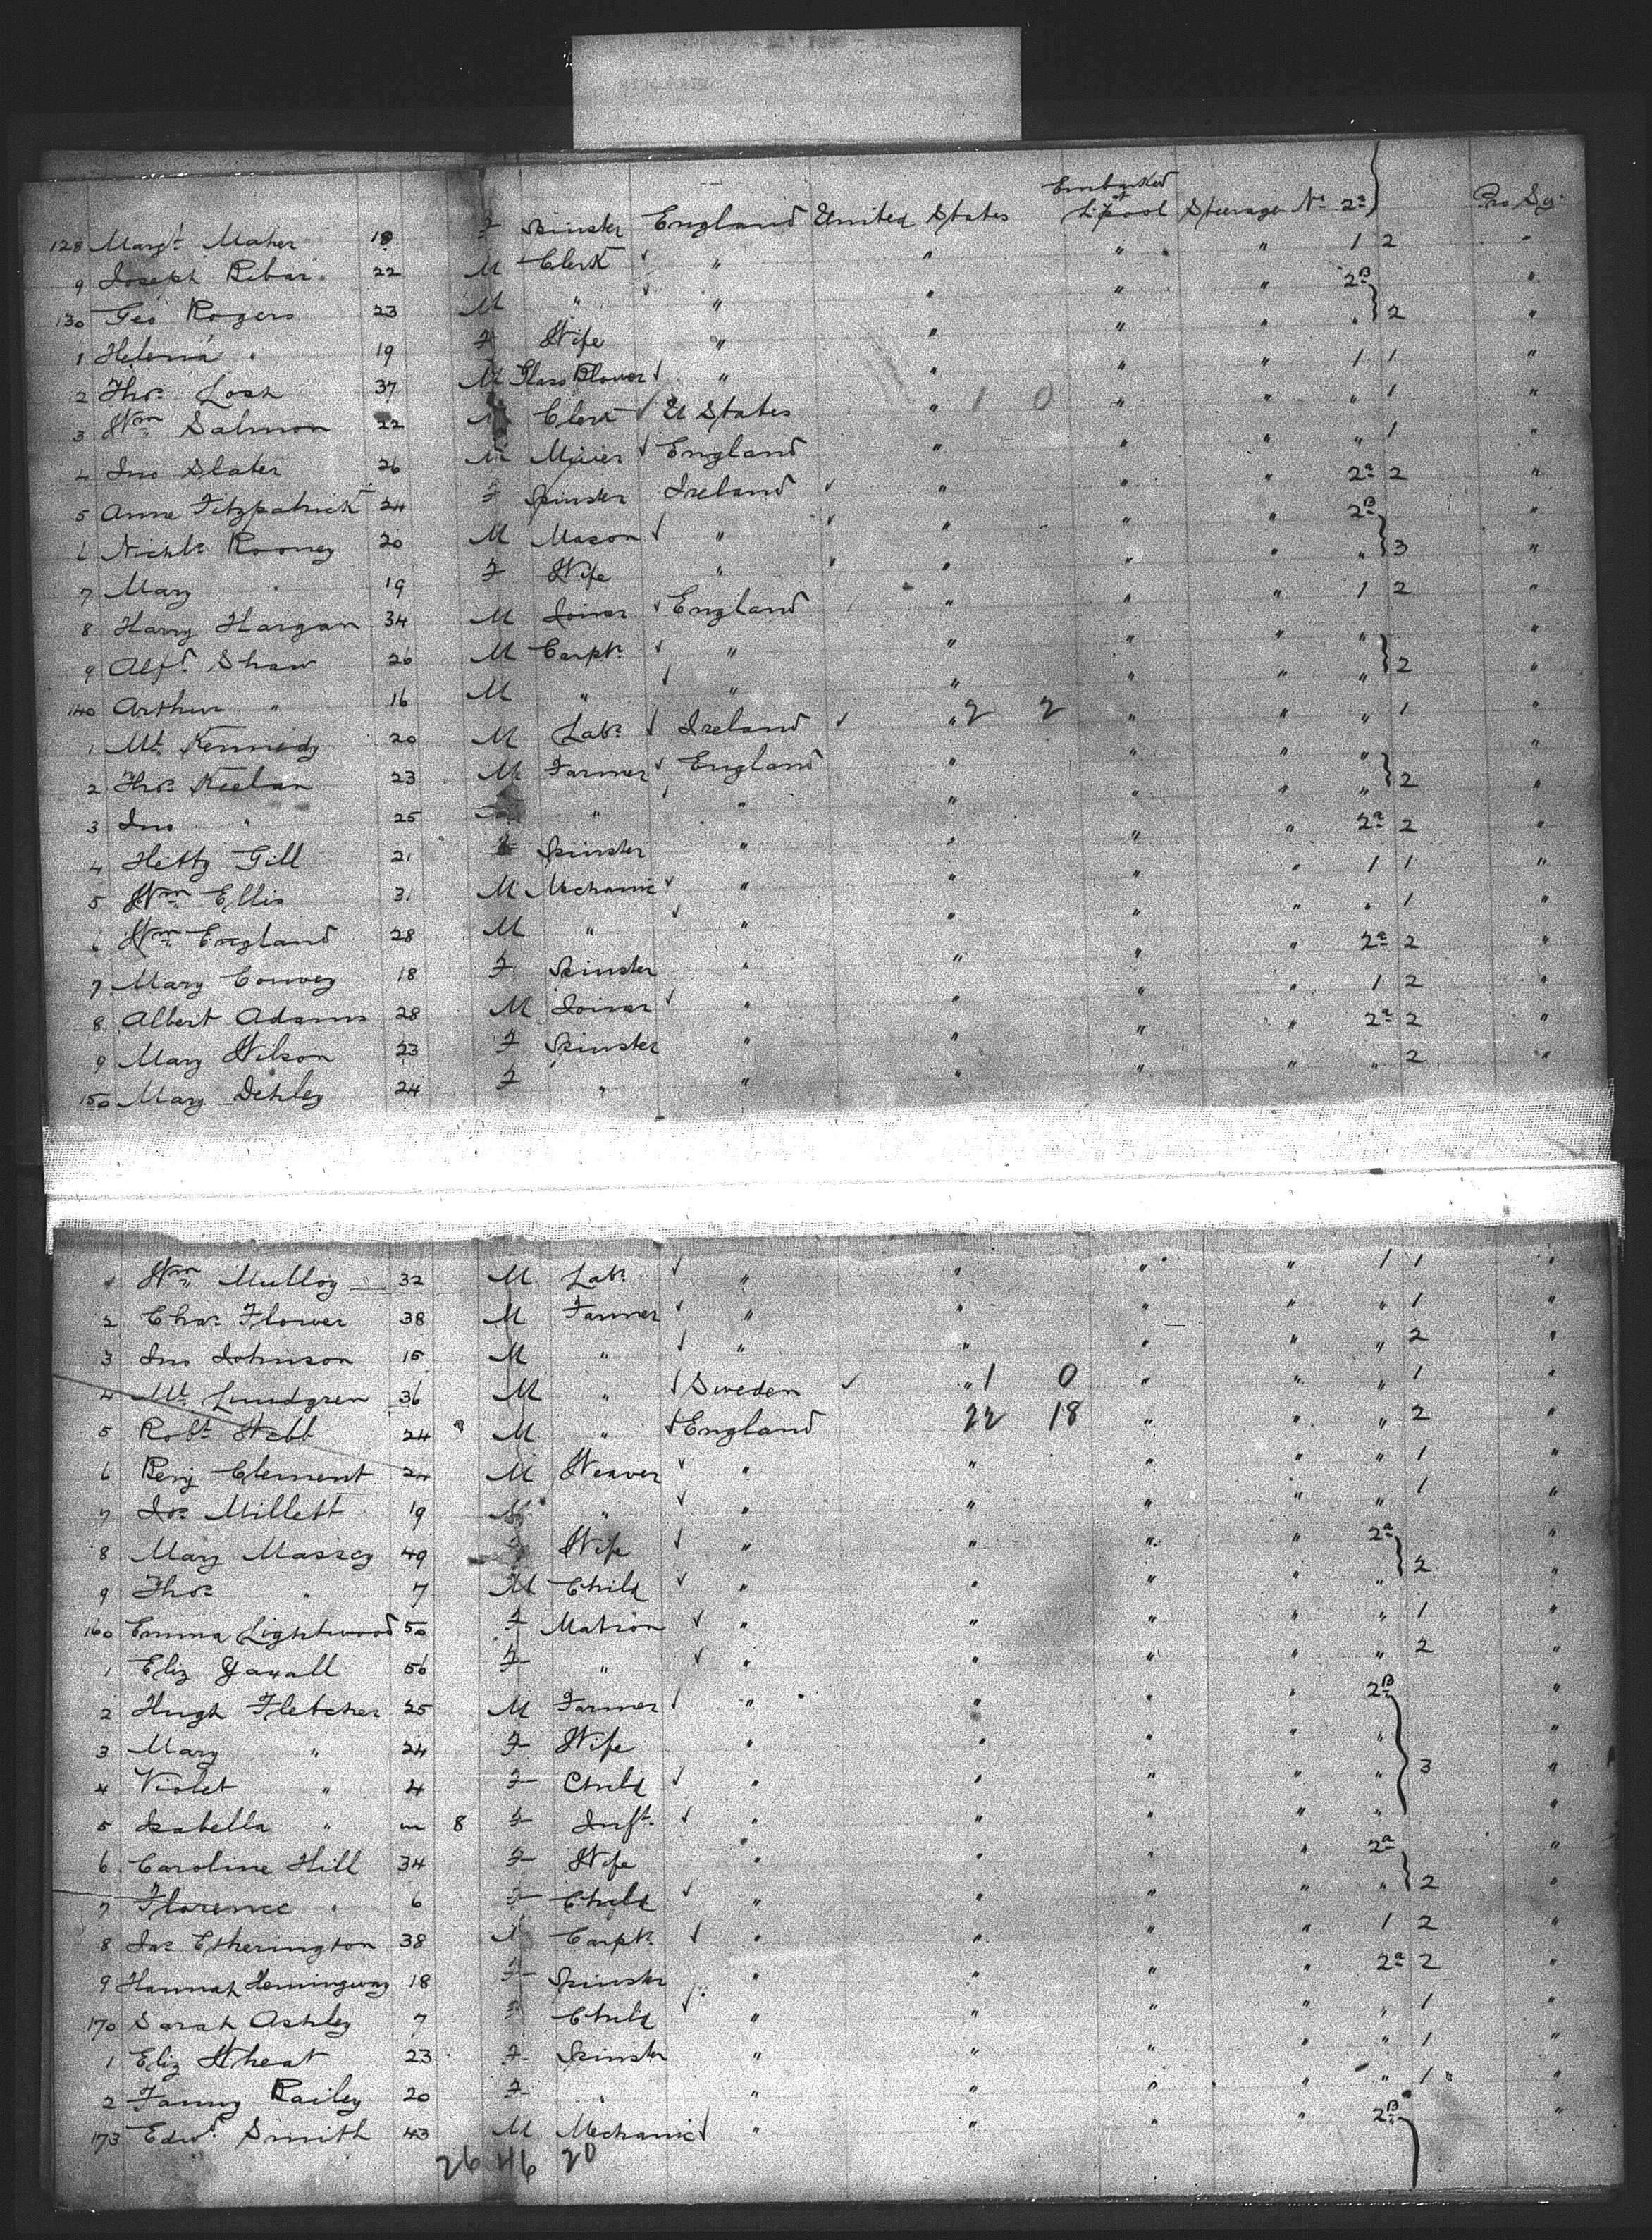 Embarked at
128 Margt Maher 18 F Spinster England United States L'pool Steerage No 2a Pro Sg.
9 Joseph 22 M Clerk " " " " 1 2 "
130 Geo Rogers 23 M " " " " " 2B "
1 Helena " 19 F Wife " " " " " 2 "
2 Thos Losh 37 M Glass Blower " " " " 1 1 "
3 Wm Salmon 22 M Clerk U States " 1 0 " " " 1 "
4 Jno Slater 26 M Miner England " " " " 1 "
5 Anne Fitzpatrick 24 F Spinster Ireland " " " 2a 2 "
6 Nichls Rooney 20 M Mason " " " " 2B "
7 Mary " 19 F Wife " " " " " 3 "
8 Harry Hargan 34 M Joiner England " " " 1 2 "
9 Alfd Shaw 26 M Carptr " " " " " "
140 Arthur " 16 M " " " " " " 2 "
1 Mt Kennedy 20 M Labr Ireland " 2 2 " " " 1 "
2 Thos Keelan 23 M Farmer England " " " " "
3 Jno " 25 " " " " " " 2 "
4 Hetty Gill 21 F Spinster " " " " 2a 2 "
5 Wm Ellis 31 M Mechanic " " " " 1 1 "
6 Wm England 28 M " " " " " " 1 "
7 Mary Convey 18 F Spinster " " " " 2a 2 "
8 Albert Adams 28 M Joiner " " " " 1 2 "
9 Mary Wilson 23 F Spinster " " " " 2a 2 "
150 Mary Dehley 24 F " " " " " " 2 "
1 Wm Mulloy 32 M Labr " " " " 1 1 "
2 Chas Flower 38 M Farmer " " " " " 1 "
3 Jno Johnson 15 M " " " " " " 2 "
4 Mt Lundgren 36 M " Sweden " 1 0 " " " 1 "
5 Robt Webb 24 M " England 22 18 " " " 2 "
6 Benj Clement 24 M Weaver " " " " " 1 "
7 Jos Millett 19 M " " " " " " 1 "
8 Mary Massey 49 F Wife " " " " 2a "
9 Thos " 7 M Child " " " " " 2 "
160 Emma Lightwood 50 F Matron " " " " " 1 "
1 Eliz Yaxall 56 F " " " " " " 2 "
2 Hugh Fletcher 25 M Farmer " " " " 2B "
3 Mary " 24 F Wife " " " " " "
4 Violet " 4 F Child " " " " " 3 "
5 Isabella " m 8 F Inft. " " " " " "
6 Caroline Hill 34 F Wife " " " " 2a "
7 Florence " 6 F Child " " " " " 2 "
8 Jas Etherington 38 M Carptr " " " " 1 2 "
9 Hannah Hemingway 18 F Spinster " " " " 2a 2 "
170 Sarah Ashley 7 F Child " " " " " 1 "
1 Eliz Wheat 23 F Spinster " " " " " 1 "
2 Fanny Bailey 20 F " " " " " " 1 "
173 Edwd Smith 43 M Mechanic " " " " 2B "
26 46 20